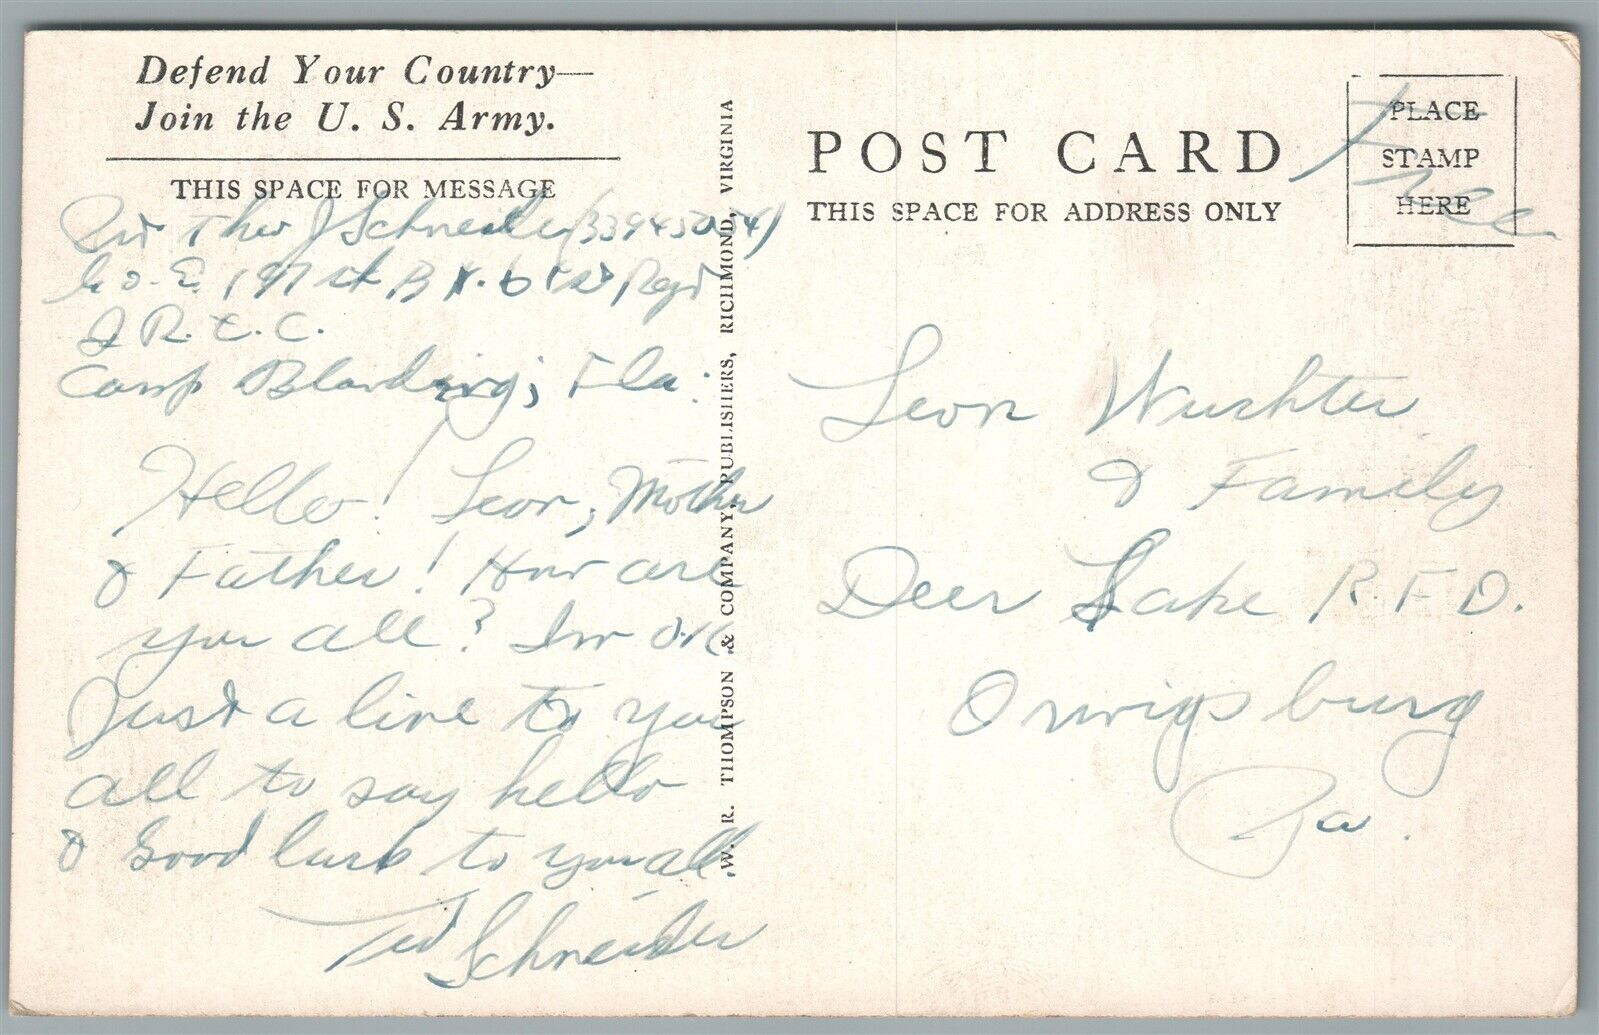 Defend Your Country—
Join the U. S. Army.
THIS SPACE FOR MESSAGE
Pvt Theo J Schneider (33945054)
Co. E. 197th BN. Regt
I R. T. C.
Camp Blanding, Fla.
Hello! Leon, Mother
& Father! How are
you all? Im O.K
Just a line to you
all to say hello
& Good luck to you all.
Ted Schneider
W. R. THOMPSON & COMPANY, PUBLISHERS, RICHMOND, VIRGINIA
POST CARD
THIS SPACE FOR ADDRESS ONLY
PLACE
STAMP
HERE
Free
Leon Wushter
& Family
Deer Lake R.F.D.
Orwigsburg
Pa.